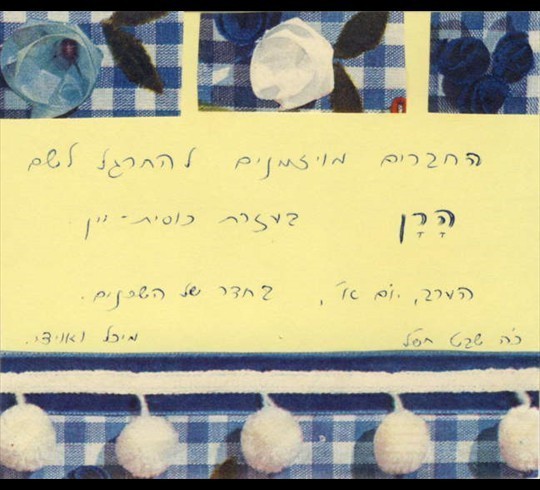 החברים מוזמנים להתרגל לשם
הָרָן בעזרת כוסית-יין
הערב, יום א', בחדר של השכנים.
כ"ה שבט תשל מיכל ואוידי.